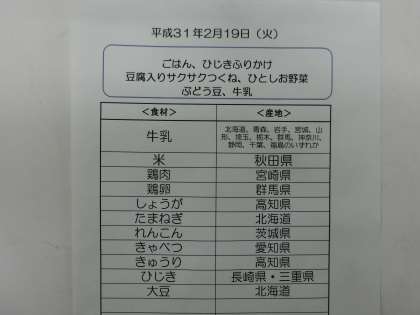 平成31年2月19日（火）
ごはん、ひじきふりかけ
豆腐入りサクサクつくね、ひとしお野菜
ぶどう豆、牛乳
＜食材＞ ＜産地＞
牛乳 北海道、青森、岩手、宮城、山
形、埼玉、栃木、群馬、神奈川、
静岡、千葉、福島のいずれか
米 秋田県
鶏肉 宮崎県
鶏卵 群馬県
しょうが 高知県
たまねぎ 北海道
れんこん 茨城県
きゃべつ 愛知県
きゅうり 高知県
ひじき 長崎県・三重県
大豆 北海道